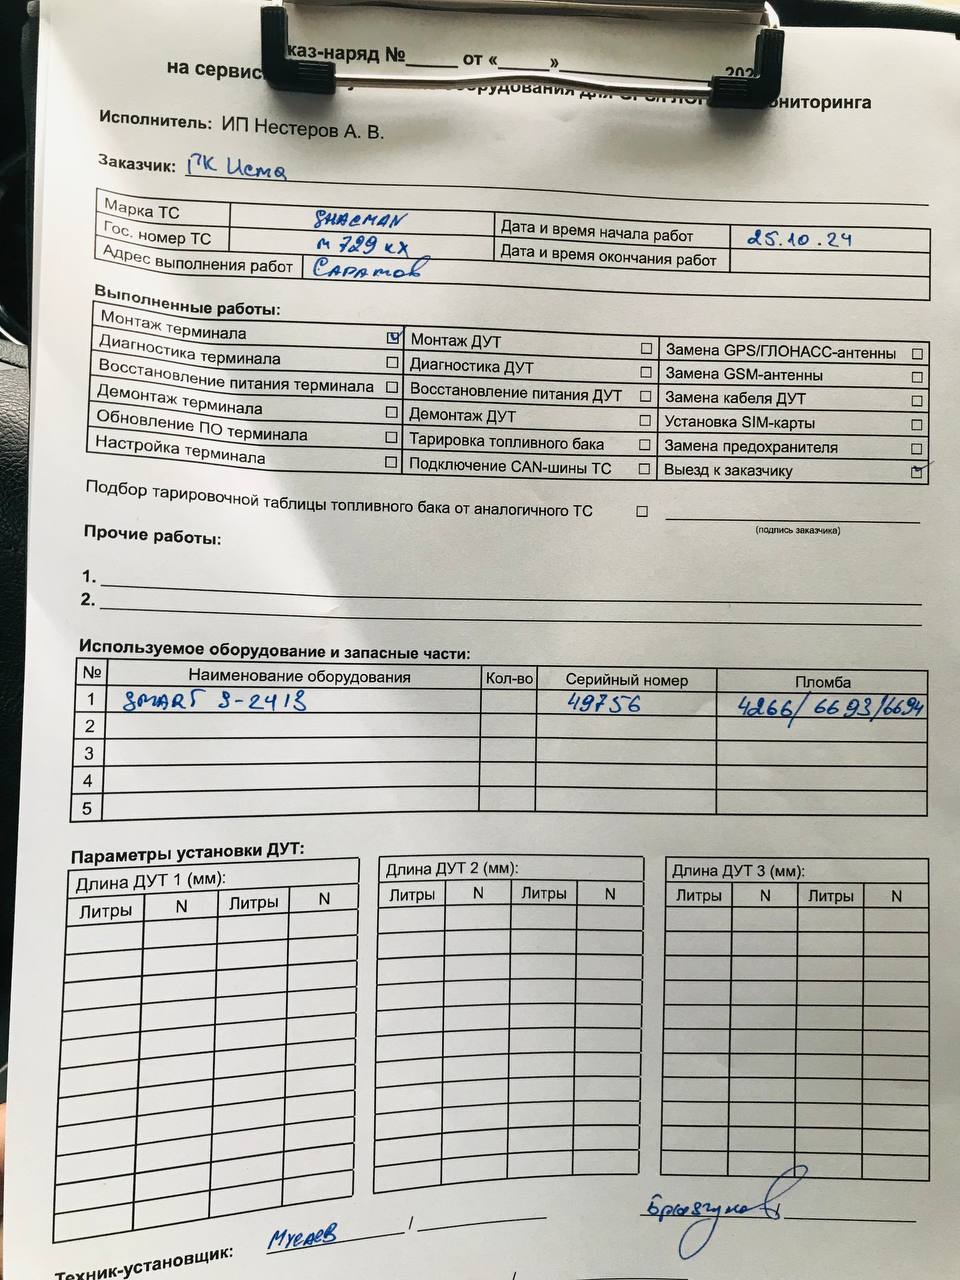 каз-наряд №_____ от «_____»_______________ 202
на сервис оборудования для ониторинга
Исполнитель: ИП Нестеров А. В.
Заказчик: ГК Исма
Марка ТС SHACMAN Дата и время начала работ 25.10.24
Гос. номер ТС м 729 кх Дата и время окончания работ
Адрес выполнения работ Саратов
Выполненные работы:
Монтаж терминала ☑ Монтаж ДУТ ☐ Замена GPS/ГЛОНАСС-антенны ☐
Диагностика терминала ☐ Диагностика ДУТ ☐ Замена GSM-антенны ☐
Восстановление питания терминала ☐ Восстановление питания ДУТ ☐ Замена кабеля ДУТ ☐
Демонтаж терминала ☐ Демонтаж ДУТ ☐ Установка SIM-карты ☐
Обновление ПО терминала ☐ Тарировка топливного бака ☐ Замена предохранителя ☐
Настройка терминала ☐ Подключение CAN-шины ТС ☐ Выезд к заказчику ☑
Подбор тарировочной таблицы топливного бака от аналогичного ТС ☐
(подпись заказчика)
Прочие работы:
1.
2.
Используемое оборудование и запасные части:
№ Наименование оборудования Кол-во Серийный номер Пломба
1 SMART S-2413 49756 4266/ 6693/6694
2
3
4
5
Параметры установки ДУТ:
Длина ДУТ 1 (мм): Длина ДУТ 2 (мм): Длина ДУТ 3 (мм):
Литры N Литры N Литры N Литры N Литры N Литры N
Техник-установщик: Мусаев /